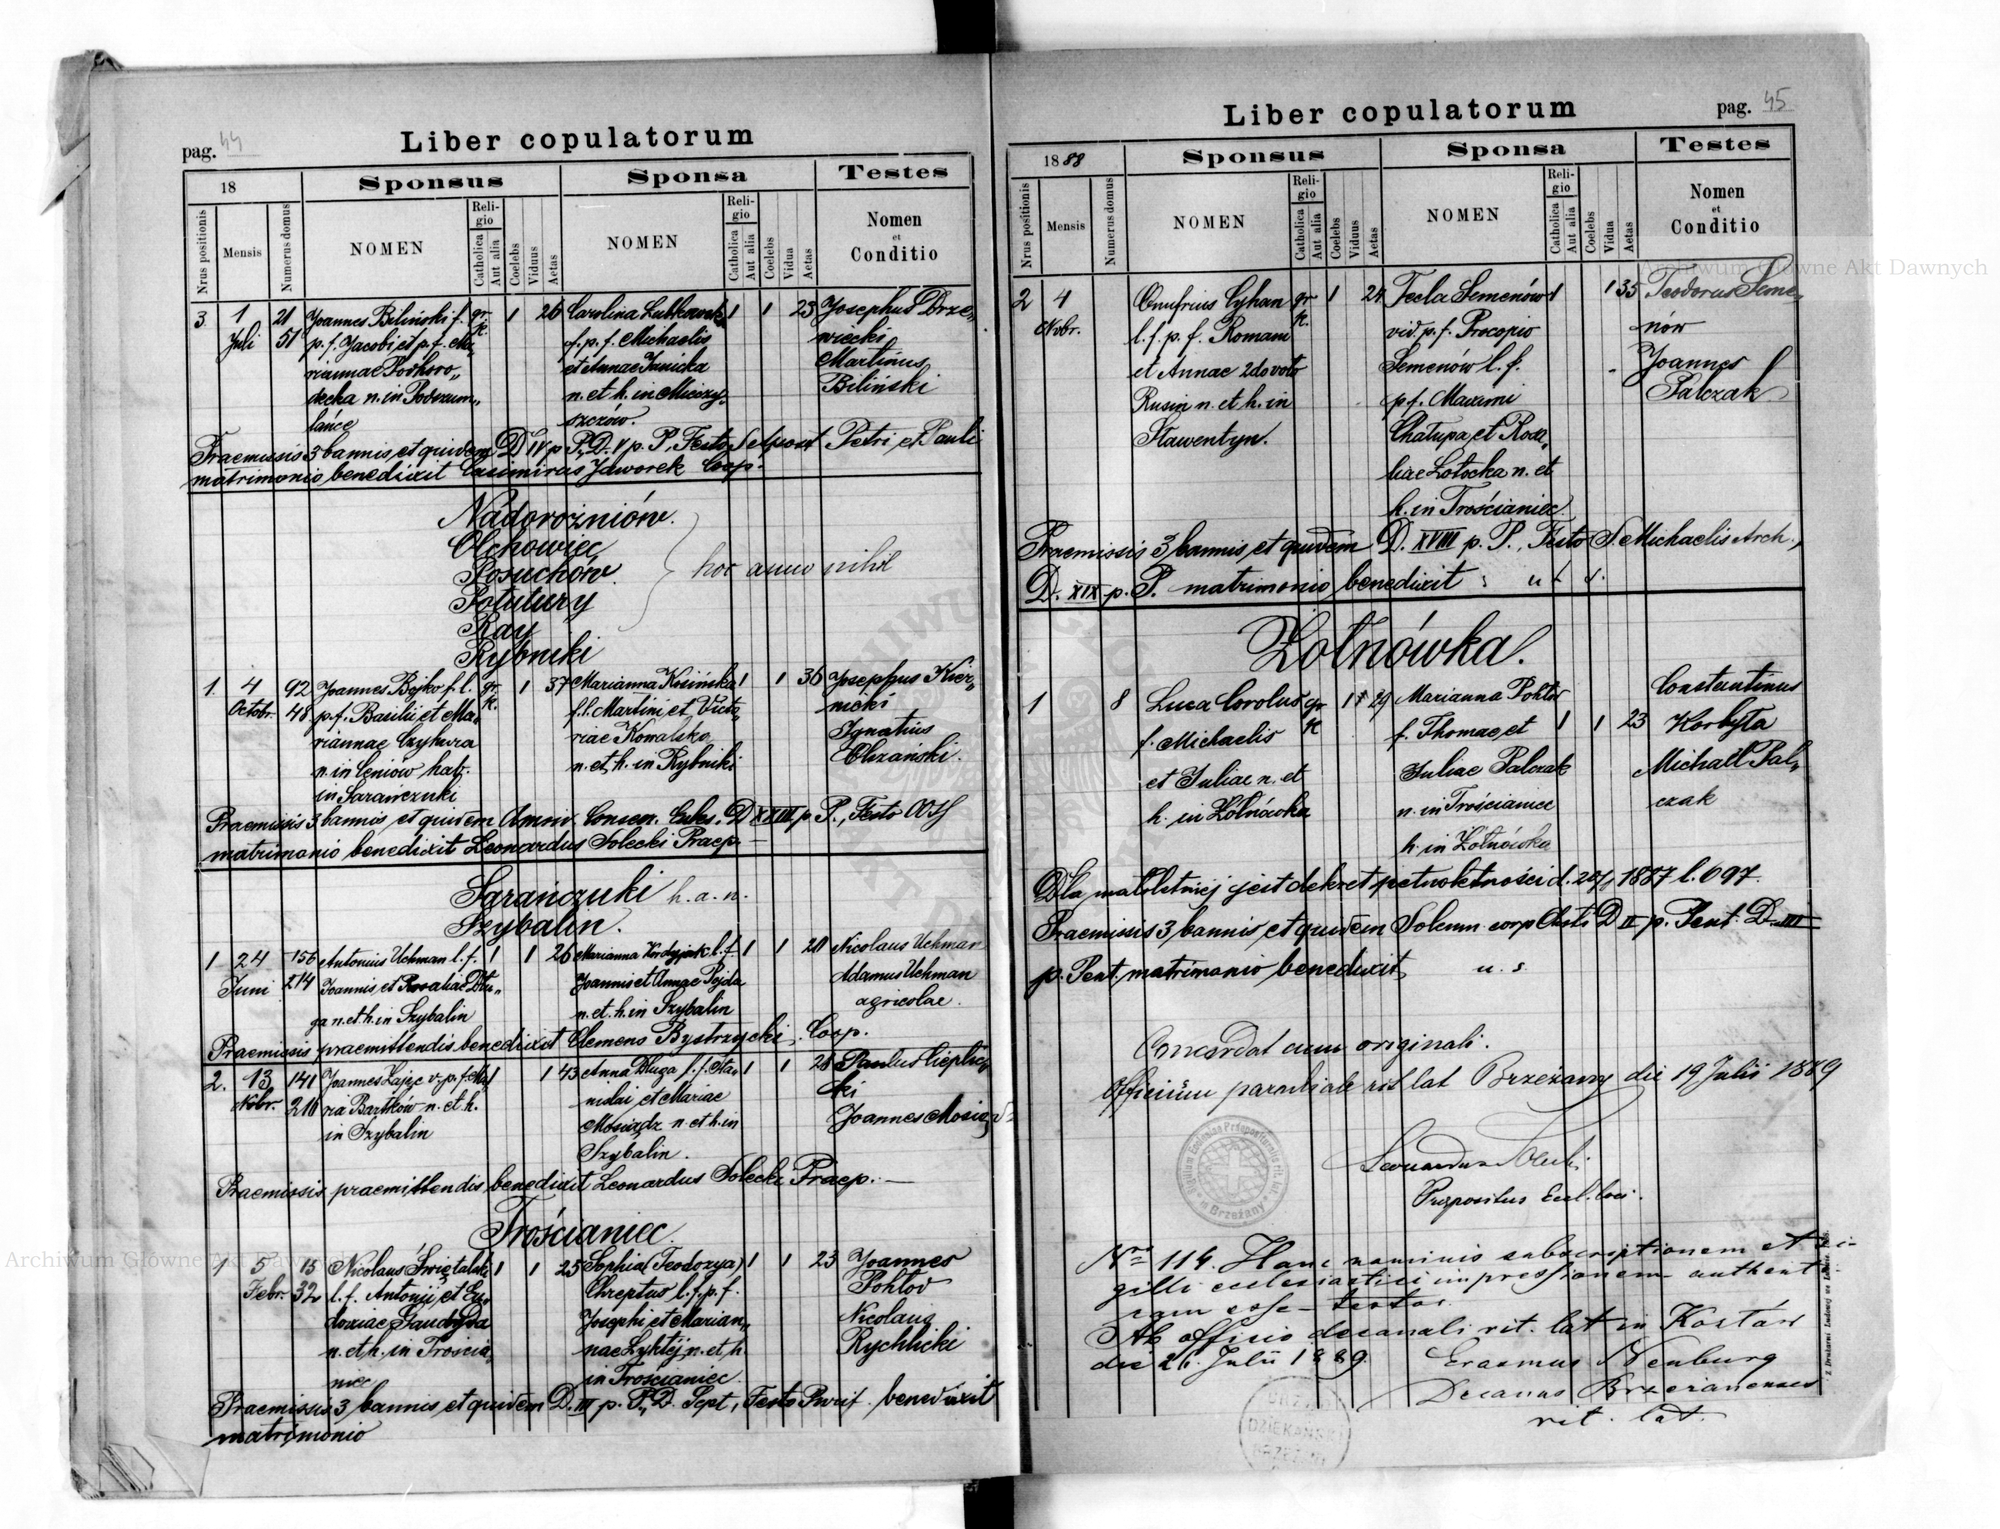 pag. 44
Liber copulatorum
18
Sponsus
Sponsa
Testes
Nrus positionis
Mensis
Numerus domus
NOMEN
Religio
Catholica
Aut alia
Coelebs
Viduus
Aetas
NOMEN
Religio
Catholica
Aut alia
Coelebs
Vidua
Aetas
Nomen
et
Conditio
3. 1 21 Joannes Biliński f. gr. 1 26 Carolina Lutkowska 1 1 23 Josephus Drze„
Juli 51 p. f. Jacobi et p. f. Ma„ k. f. p. f. Michaelis wiecki
riannae Podhoro„ et Annae Janicka Martinus
decka n. in Podszum„ n. et h. in Mieczy„ Biliński
lańce szczów.
Praemissis 3 bannis et quidem D. IV p. P., D. V p. P., Festo S. Apost. Petri et Pauli
matrimonio benedixit Casimirus Jaworek Coop.
Nadorożniów.
Olchowiec
Posuchów.
Potutury
Ray
hoc anno nihil
Rybniki
1. 4 92 Joannes Bojko f. l. gr. 1 37 Marianna Kosińska 1 1 36 Josephus Kier„
Octobr. 48 p. f. Basilii et Ma„ k. f. l. Martini et Victo„ nicki
riannae Czykura riae Kowalska Ignatius
n. in Ceniów hab. n. et h. in Rybniki Olszański.
in Sarańczuki
Praemissis 3 bannis et quidem Anniv. Consecr. Eccles. D. XXIII p. P., Festo OO SS
matrimonio benedixit Leonardus Solecki Praep.
Sarańczuki h. a. n.
Szybalin.
1 24 156 Antonius Uchman l. f. 1 1 26 Marianna l. f. 1 1 20 Nicolaus Uchman
Juni 214 Joannis et Rosaliae Dłu„ Joannis et Annae Pojda Adamus Uchman
ga n. et. h. in Szybalin n. et. h. in Szybalin agricolae.
Praemissis praemittendis benedixit Clemens Bystrzycki, Coop.
2. 13 141 Joannes Zając v. p. f. Ma 1 1 43 Anna Długa l. f. Sta„ 1 1 28 Paulus Cieplic„
Nobr. 216 ria Bartków n. et h. nislai et Mariae ki
in Szybalin Mosiądz n. et h. in Joannes Mosiądz
Szybalin.
Praemissis praemittendis benedixit Leonardus Solecki Praep.
Trościaniec.
1 5 15 Nicolaus Świętalski 1 1 25 Sophia (Teodozya) 1 1 23 Joannes
Febr. 32 l. f. Antonii et Eu„ Chreptus l. f. p. f. Pohtor
doxiae Josephi et Marian„ Nicolaus
n. et h. in Trościa„ nae Łyktej n. et h. Rychlicki
niec in Trościaniec.
Praemissis 3 bannis et quidem D. III p. P., D. Sept., Festo Purif. benedixit
matrimonio
Liber copulatorum
pag. 45
1888
Sponsus
Sponsa
Testes
Nrus positionis
Mensis
Numerus domus
NOMEN
Religio
Catholica
Aut alia
Coelebs
Viduus
Aetas
NOMEN
Religio
Catholica
Aut alia
Coelebs
Vidua
Aetas
Nomen
et
Conditio
2 4 Onufrius Cyhan gr. 1 24 Tecla Semenów 1 1 35 Teodorus Seme„
Nobr. l. f. p. f. Romani k. vid. p. f. Procopio nów
et Annae 2do voto Semenów l. f. Joannes
Rusin n. et h. in p f. Maximi Palczak
Sławentyn. Chałupa et Roza„
liae Łotocka n. et
h. in Trościaniec
Praemissis 3 bannis et quidem D. XVIII p. P., Festo S. Michaelis Arch.,
D. XIX p. P. matrimonio benedixit ut s.
Żołnówka.
1 8 Luca Corolus gr. 1 29 Marianna Pohtor Constantinus
f. Michaelis k f. Thomae et 1 1 23 Korbyta
et Juliae n. et Juliae Palczak Michaël Pal„
h. in Żołnówka n. in Trościaniec czak
h. in Żołnówka
Dla małoletniej jest dekret pełnoletności d. 20/8 1887 l. 697.
Praemissis 3 bannis et quidem Solemn. corp. Christi D. II p. Pent. D. III
p. Pent. matrimonio benedixit u. s.
Concordat cum originali.
Officium parochiale rit. lat Brzeżany die 19 Julii 1889
Leonardus Solecki
Praepositus Eccl. loci.
Sigillum Ecclesiae Praepositurialis rit. lat. in Brzeżany
Nro 114. Hanc nominis subscriptionem et si-
gilli ecclesiastici impressionem authenti-
cam esse testor.
Ab officio decanali rit. lat in Kozłów
die 26. Julii 1889.
Erasmus Neuburg
Decanus Brzeżanensis
rit. lat.
URZĄD DZIEKAŃSKI
Archiwum Główne Akt Dawnych
Archiwum Główne Akt Dawnych